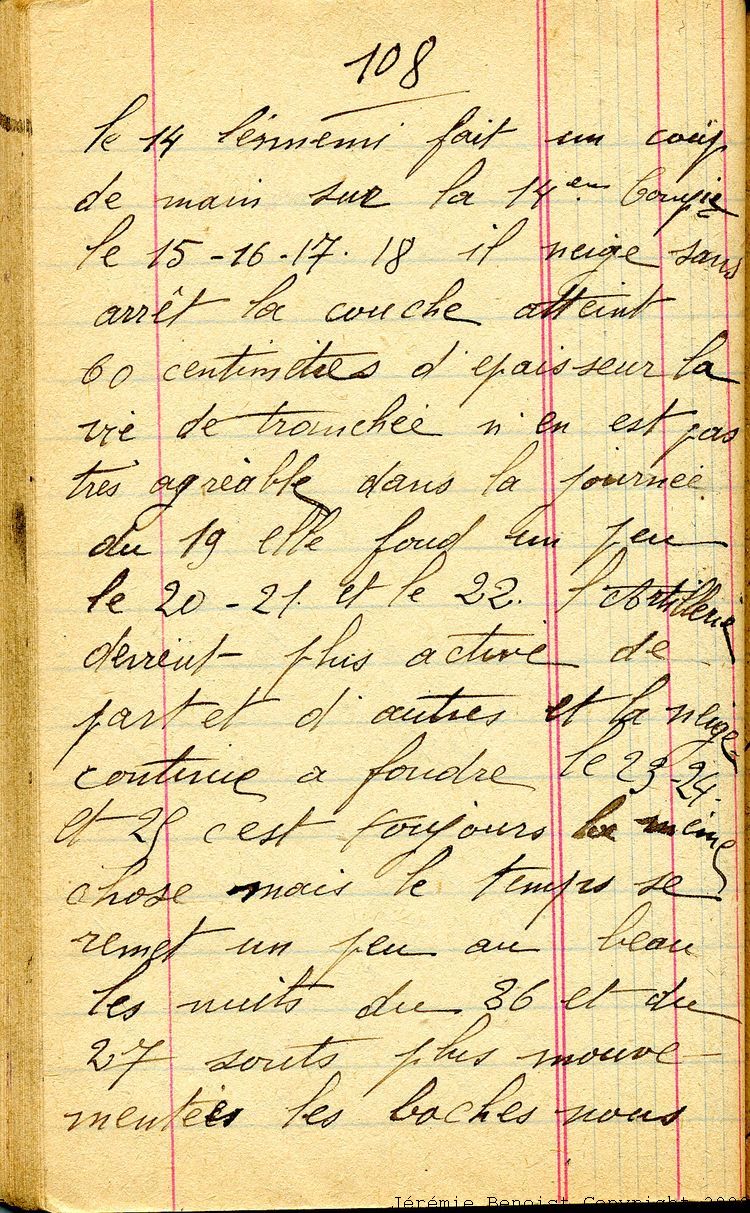 108
le 14 l'ennemi fait un coup
de main sur la 14em Compie
le 15-16-17-18 il neige sans
arrêt la couche atteint
60 centimètres d'epaisseur la
vie de tranchée n'en est pas
très agréable dans la journée
du 19 elle fond un peu
le 20-21. et le 22. l'Artillerie
devient plus active de
part et d'autres et la neige
continue a fondre le 23-24.
et 25 c'est toujours la même
chose mais le temps se
remet un peu au beau
les nuits du 26 et du
27 sonts plus mouve-
mentées les boches nous
Jérémie Benoist Copyright